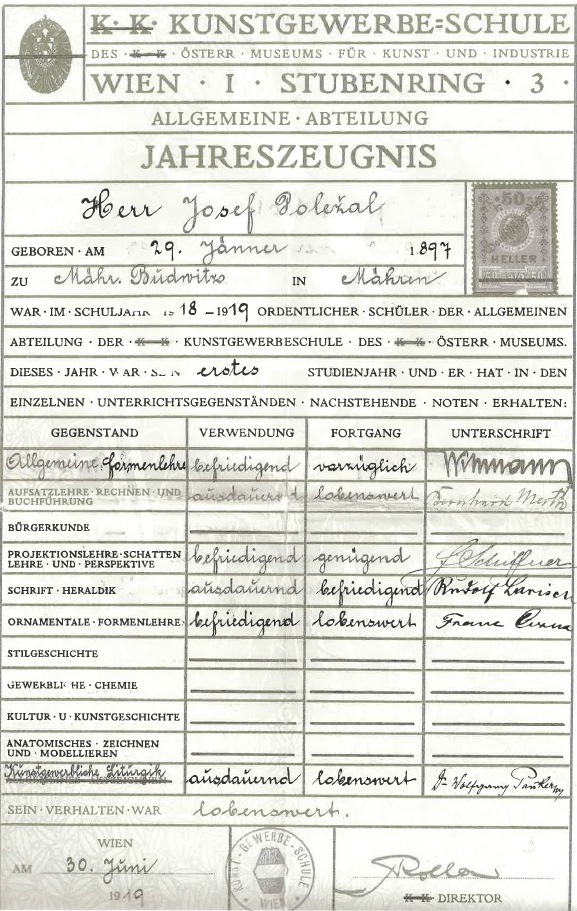 K. K. KUNSTGEWERBE=SCHULE
DES · K — K · ÖSTERR · MUSEUMS · FÜR · KUNST · UND · INDUSTRIE
WIEN · I · STUBENRING · 3 ·
ALLGEMEINE · ABTEILUNG
JAHRESZEUGNIS
Herr Josef Doležal
50
HELLER
GEBOREN · AM 29. Jänner 1897
ZU Mähr. Budwitz IN Mähren
WAR · IM · SCHULJAHR 1918 – 1919 ORDENTLICHER · SCHÜLER · DER · ALLGEMEINEN
ABTEILUNG · DER · K — K · KUNSTGEWERBESCHULE · DES · K — K · ÖSTERR · MUSEUMS.
DIESES · JAHR · WAR · SEIN erstes STUDIENJAHR · UND · ER · HAT · IN · DEN
EINZELNEN · UNTERRICHTSGEGENSTÄNDEN · NACHSTEHENDE · NOTEN · ERHALTEN:
GEGENSTAND VERWENDUNG FORTGANG UNTERSCHRIFT
Allgemeine Formenlehre befriedigend vorzüglich Witzmann
AUFSATZLEHRE · RECHNEN · UND · BUCHFÜHRUNG ausdauernd lobenswert Bernhard
BÜRGERKUNDE
PROJEKTIONSLEHRE · SCHATTEN LEHRE · UND · PERSPEKTIVE befriedigend genügend Schiffner
SCHRIFT · HERALDIK ausdauernd befriedigend Rudolf Larisch
ORNAMENTALE · FORMENLEHRE befriedigend lobenswert Franz
STILGESCHICHTE
GEWERBLICHE · CHEMIE
KULTUR · U · KUNSTGESCHICHTE
ANATOMISCHES · ZEICHNEN UND · MODELLIEREN
Kunstgewerbliche Liturgik ausdauernd lobenswert Dr Wolfgang Pauker
SEIN · VERHALTEN · WAR lobenswert.
WIEN
AM 30. Juni
1919
KUNST · GEWERBE · SCHULE · WIEN
Roller
K — K DIREKTOR